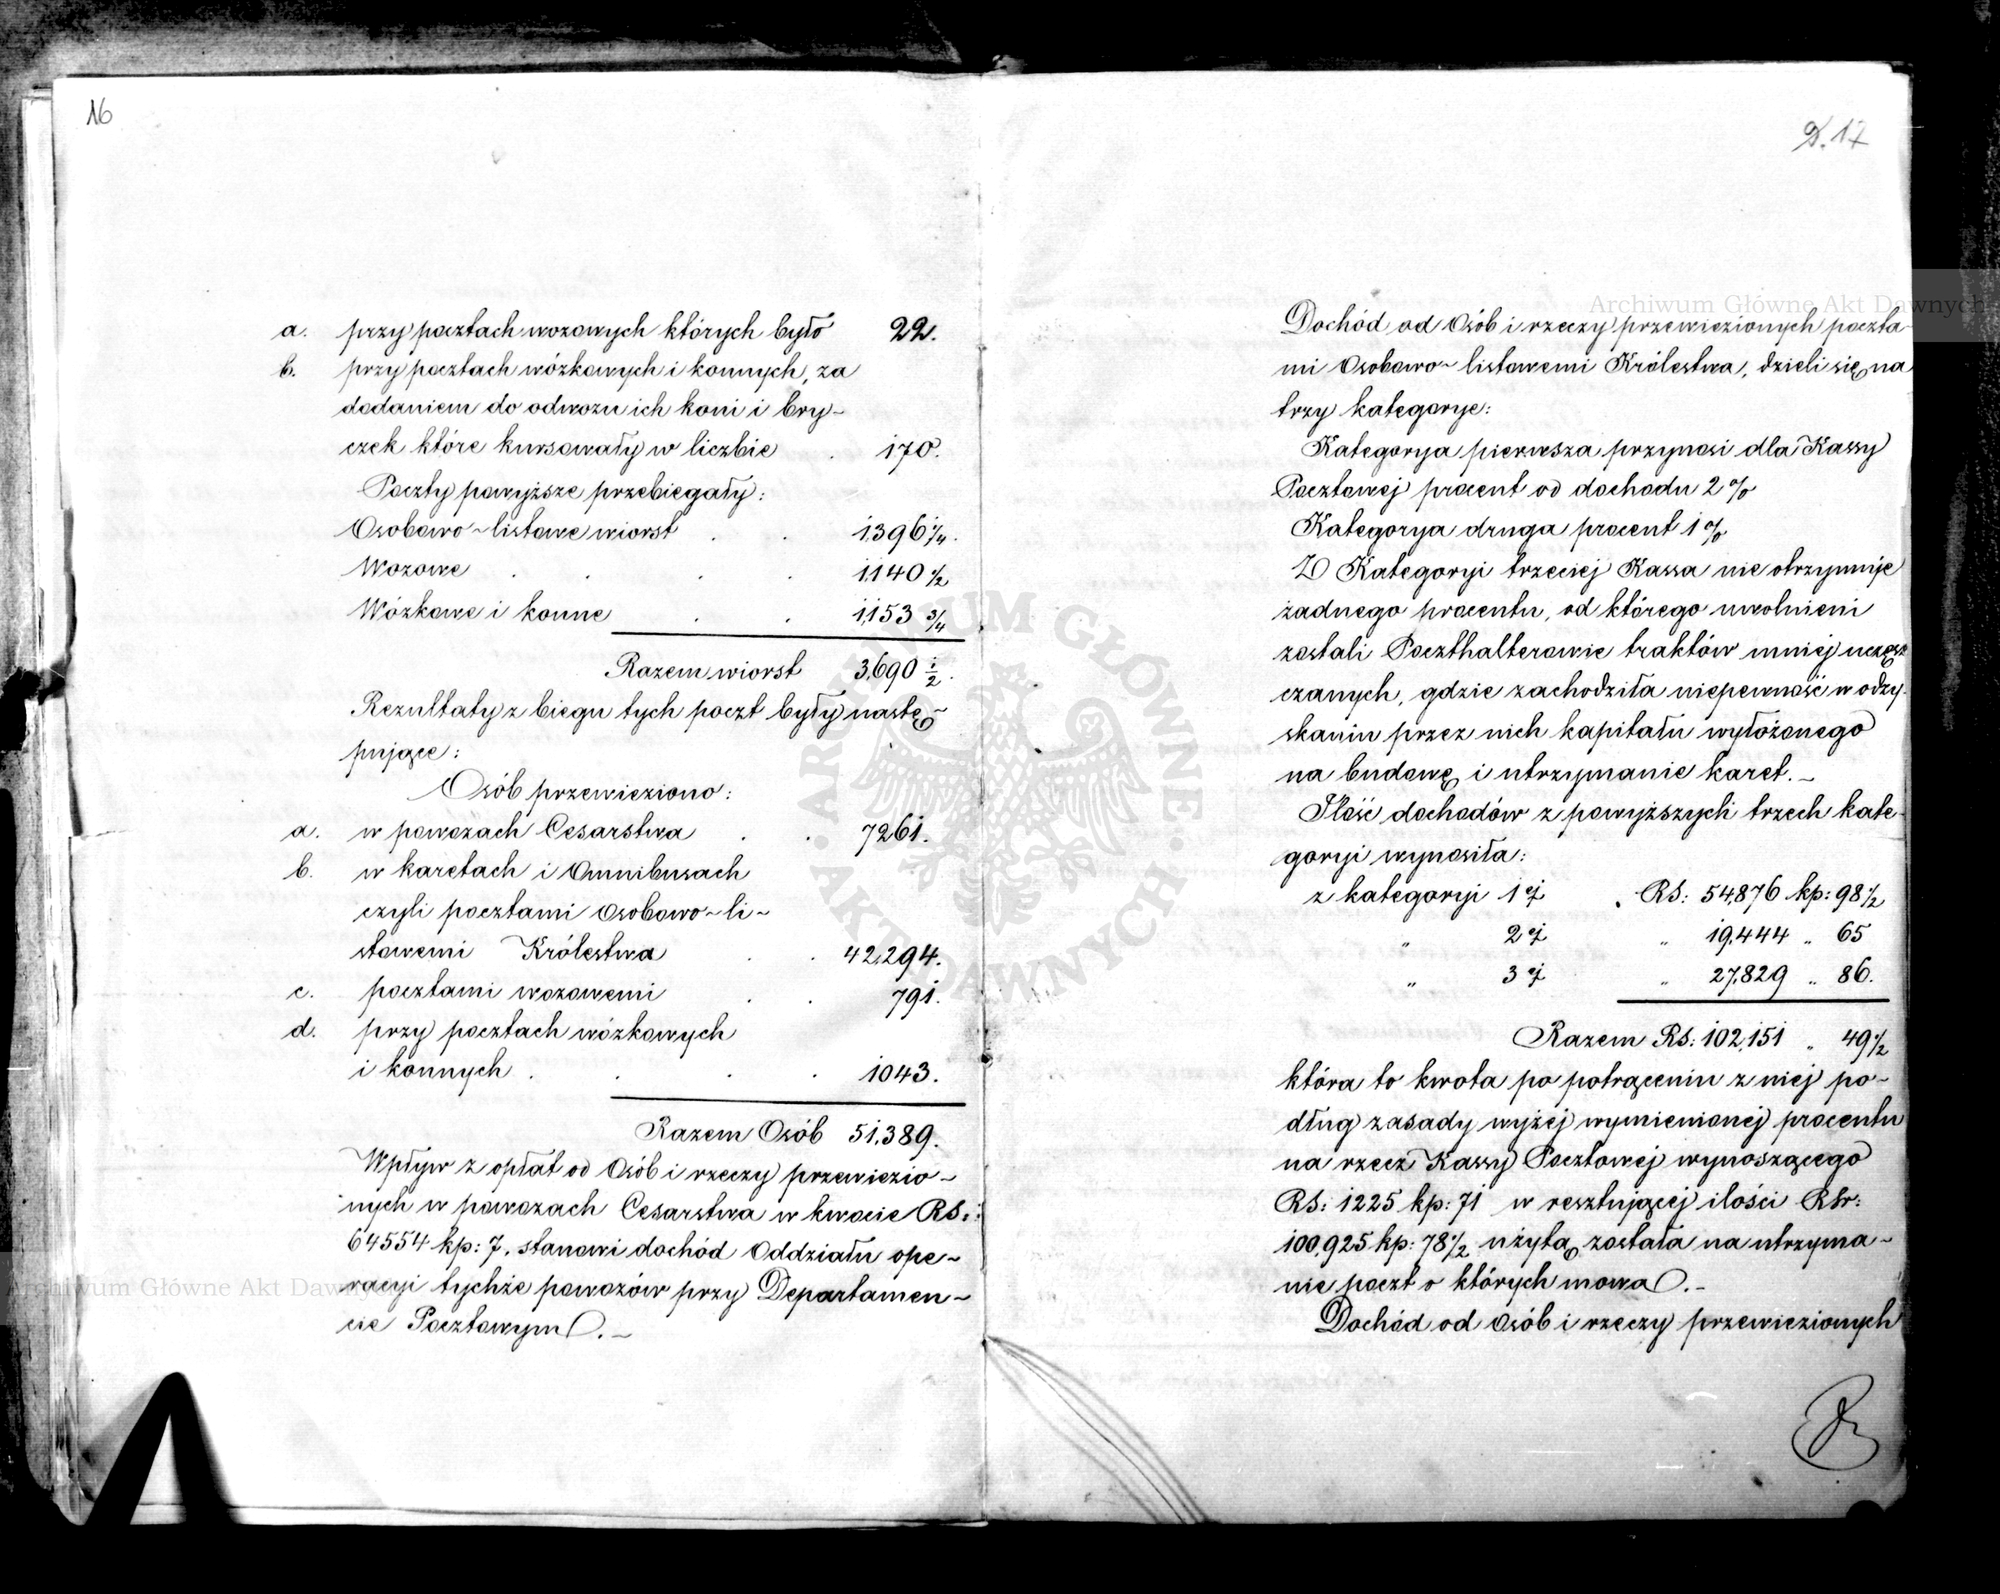 16
a. przy pocztach wozowych których było 22.
b. przy pocztach wózkowych i konnych, za
dodaniem do odwozu ich koni i bry-
czek które kursowały w liczbie . 170.
Poczty powyższe przebiegały:
Osobowo-listowe wiorst . . 1,396 1/4.
Wozowe . . . . 1,140 1/2
Wózkowe i konne . . 1,153 3/4
Razem wiorst 3,690 1/2.
Rezultaty z biegu tych poczt były nastę-
pujące:
Osób przewieziono:
a. w powozach Cesarstwa . . 7261.
b. w karetach i Omnibusach
czyli pocztami osobowo-li-
stowemi Królestwa . . 42,294.
c. pocztami wozowemi . . 791.
d. przy pocztach wózkowych
i konnych . . . . 1043.
Razem Osób 51,389.
Wpływ z opłat od Osób i rzeczy przewiezio-
nych w powozach Cesarstwa w kwocie RS:
64554 kp: 7. stanowi dochód Oddziału ope-
racyi tychże powozów przy Departamen-
cie Pocztowym.-
17
Dochód od Osób i rzeczy przewiezionych poczta-
mi Osobowo-listowemi Królestwa, dzieli się na
trzy kategorye:
Kategorya pierwsza przynosi dla Kassy
Pocztowej procent od dochodu 2%
Kategorya druga procent 1%
Z Kategoryi trzeciej Kassa nie otrzymuje
żadnego procentu, od którego uwolnieni
zostali Poczthalterowie traktów mniej uczęsz
czanych, gdzie zachodziła niepewność w odzy-
skaniu przez nich kapitału wyłożonego
na budowę i utrzymanie karet.-
Ilość dochodów z powyższych trzech kate-
goryi wynosiła:
z kategoryi 1ej . RS: 54,876 kp: 98 1/2
" 2ej " 19,444 " 65
" 3ej " 27,829 " 86.
Razem RS: 102,151 " 49 1/2
która to kwota po potrąceniu z niej po-
dług zasady wyżej wymienionej procentu
na rzecz Kassy Pocztowej wynoszącego
RS: 1225 kp: 71 w resztującej ilości RSr:
100,925 kp: 78 1/2 użytą została na utrzyma-
nie poczt o których mowa.-
Dochód od osób i rzeczy przewiezionych
Archiwum Główne Akt Dawnych
Archiwum Główne Akt Dawnych
ARCHIWUM GŁÓWNE · AKT DAWNYCH ·